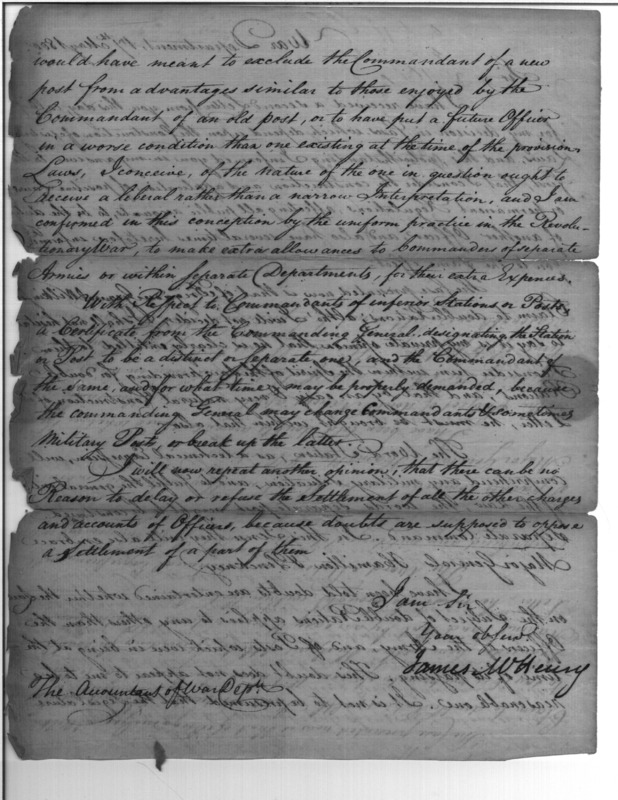 would have meant to exclude the Commandant of a new
post from advantages similar to those enjoyed by the
Commandant of an old post, or to have put a future Officer
in a worse condition than one existing at the time of the provision.
Laws, I conceive, of the nature of the one in question ought to
receive a liberal rather than a narrow Interpretation, and I am
confirmed in this conception by the uniform practice in the Revolu-
tionary War, to make extra allowances to Commanders of separate
Armies or within separate Departments, for their extra Expences.
With Respect to Commandants of inferior Stations or Posts,
a Certificate from the Commanding General designating the Station
or Post to be a distinct or separate one, and the Commandant of
the same, and for what time, may be properly demanded, because
the commanding General may change Commandants & sometimes
Military Posts, or break up the latter.
I will now repeat another opinion, that there can be no
Reason to delay or refuse the settlement of all the other charges
and accounts of Officers, because doubts are supposed to oppose
a settlement of a part of them
I am Sir
Your obServt
James McHenry
The Accountant of War Dept.